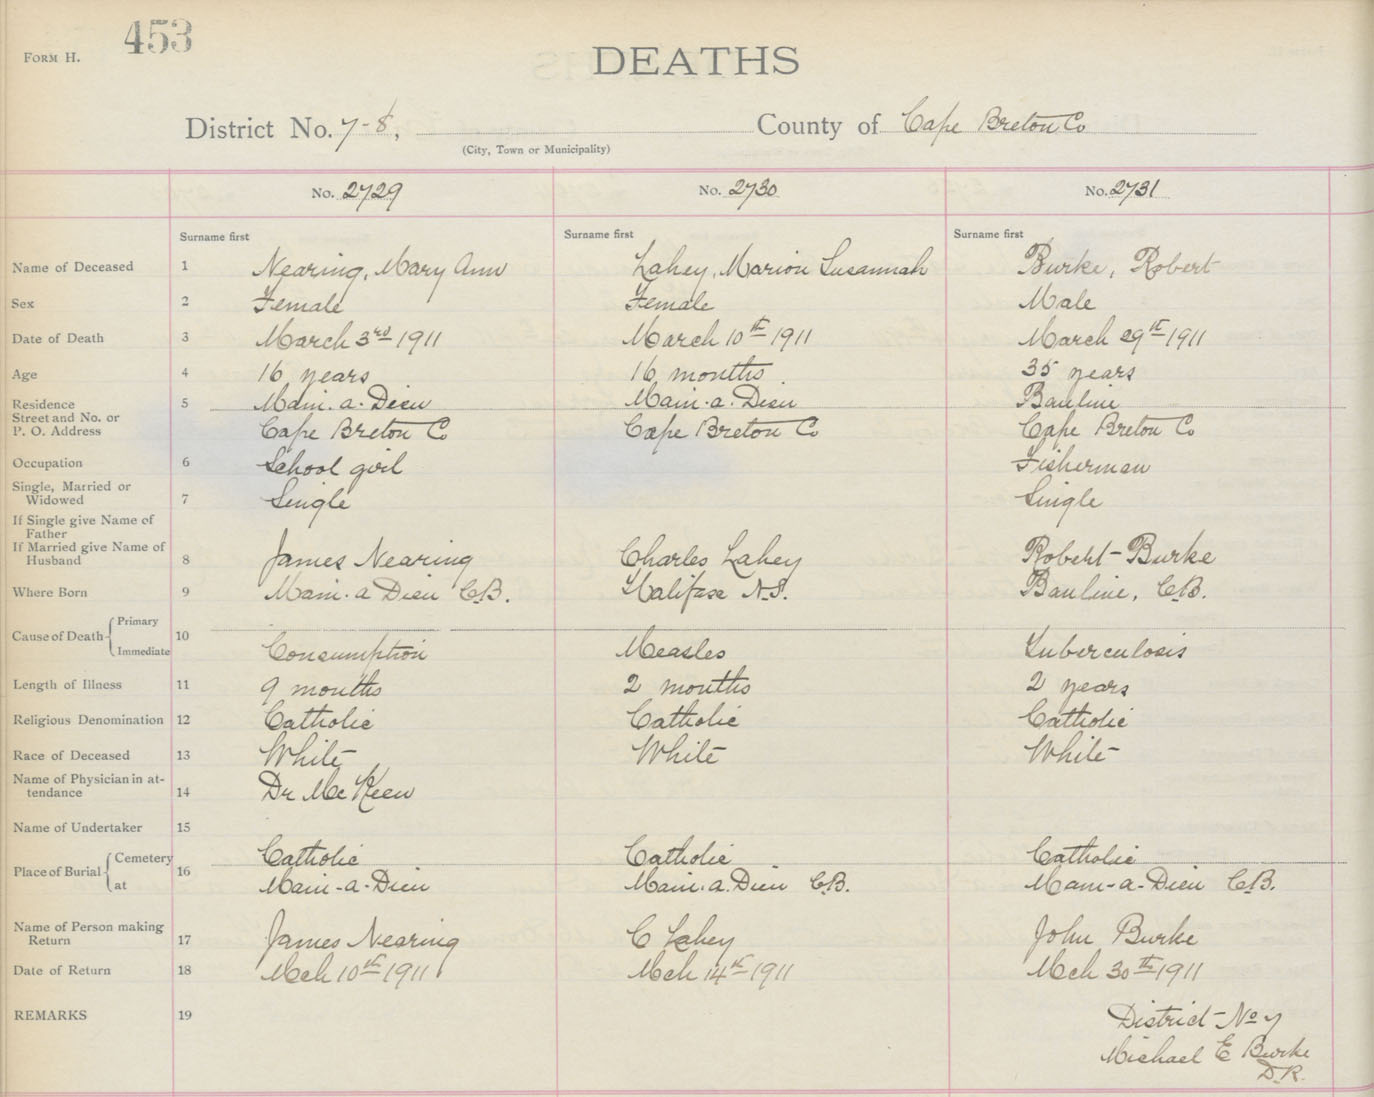 FORM H.
453
DEATHS
District No. 7-8, County of Cape Breton Co
(City, Town or Municipality)
No. 2729 No. 2730 No. 2731
Surname first Surname first Surname first
Name of Deceased 1 Nearing, Mary Ann Lahey, Marion Susannah Burke, Robert
Sex 2 Female Female Male
Date of Death 3 March 3rd 1911 March 10th 1911 March 29th 1911
Age 4 16 years 16 months 35 years
Residence 5 Main-a-Dieu Main-a-Dieu Bauline
Street and No. or
P. O. Address Cape Breton Co Cape Breton Co Cape Breton Co
Occupation 6 School girl Fisherman
Single, Married or
Widowed 7 Single Single
If Single give Name of
Father
If Married give Name of
Husband 8 James Nearing Charles Lahey Robert Burke
Where Born 9 Main-a Dieu C.B. Halifax N.S. Bauline, C.B.
Cause of Death 10 Primary
Immediate Consumption Measles Tuberculosis
Length of Illness 11 9 months 2 months 2 years
Religious Denomination 12 Catholic Catholic Catholic
Race of Deceased 13 White White White
Name of Physician in at-
tendance 14 Dr McKeen
Name of Undertaker 15
Place of Burial 16 Cemetery Catholic Catholic Catholic
at Main-a-Dieu Main-a-Dieu C.B. Main-a-Dieu C.B.
Name of Person making
Return 17 James Nearing C Lahey John Burke
Date of Return 18 Mch 10th 1911 Mch 14th 1911 Mch 30th 1911
REMARKS 19 District No 7
Michael E Burke
D.R.